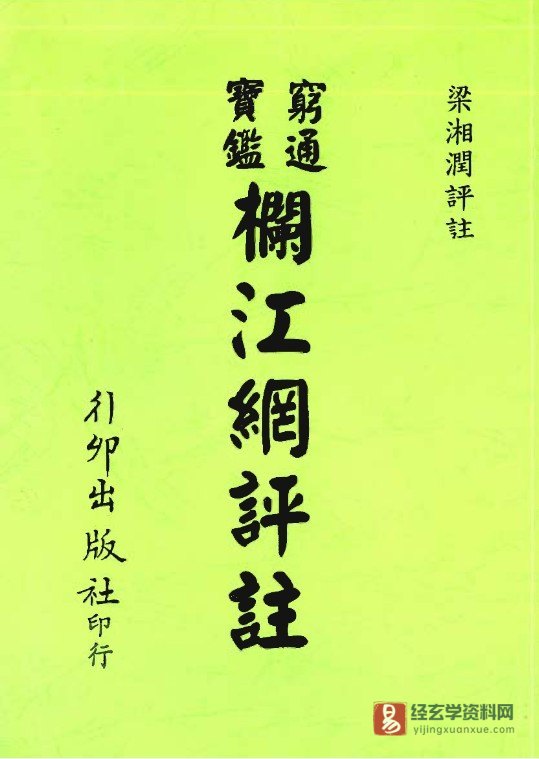 梁湘潤評註
窮通
寶鑑
欄江網評註
行卯出版社印行
易
经玄学资料网
yijingxuanxue.com